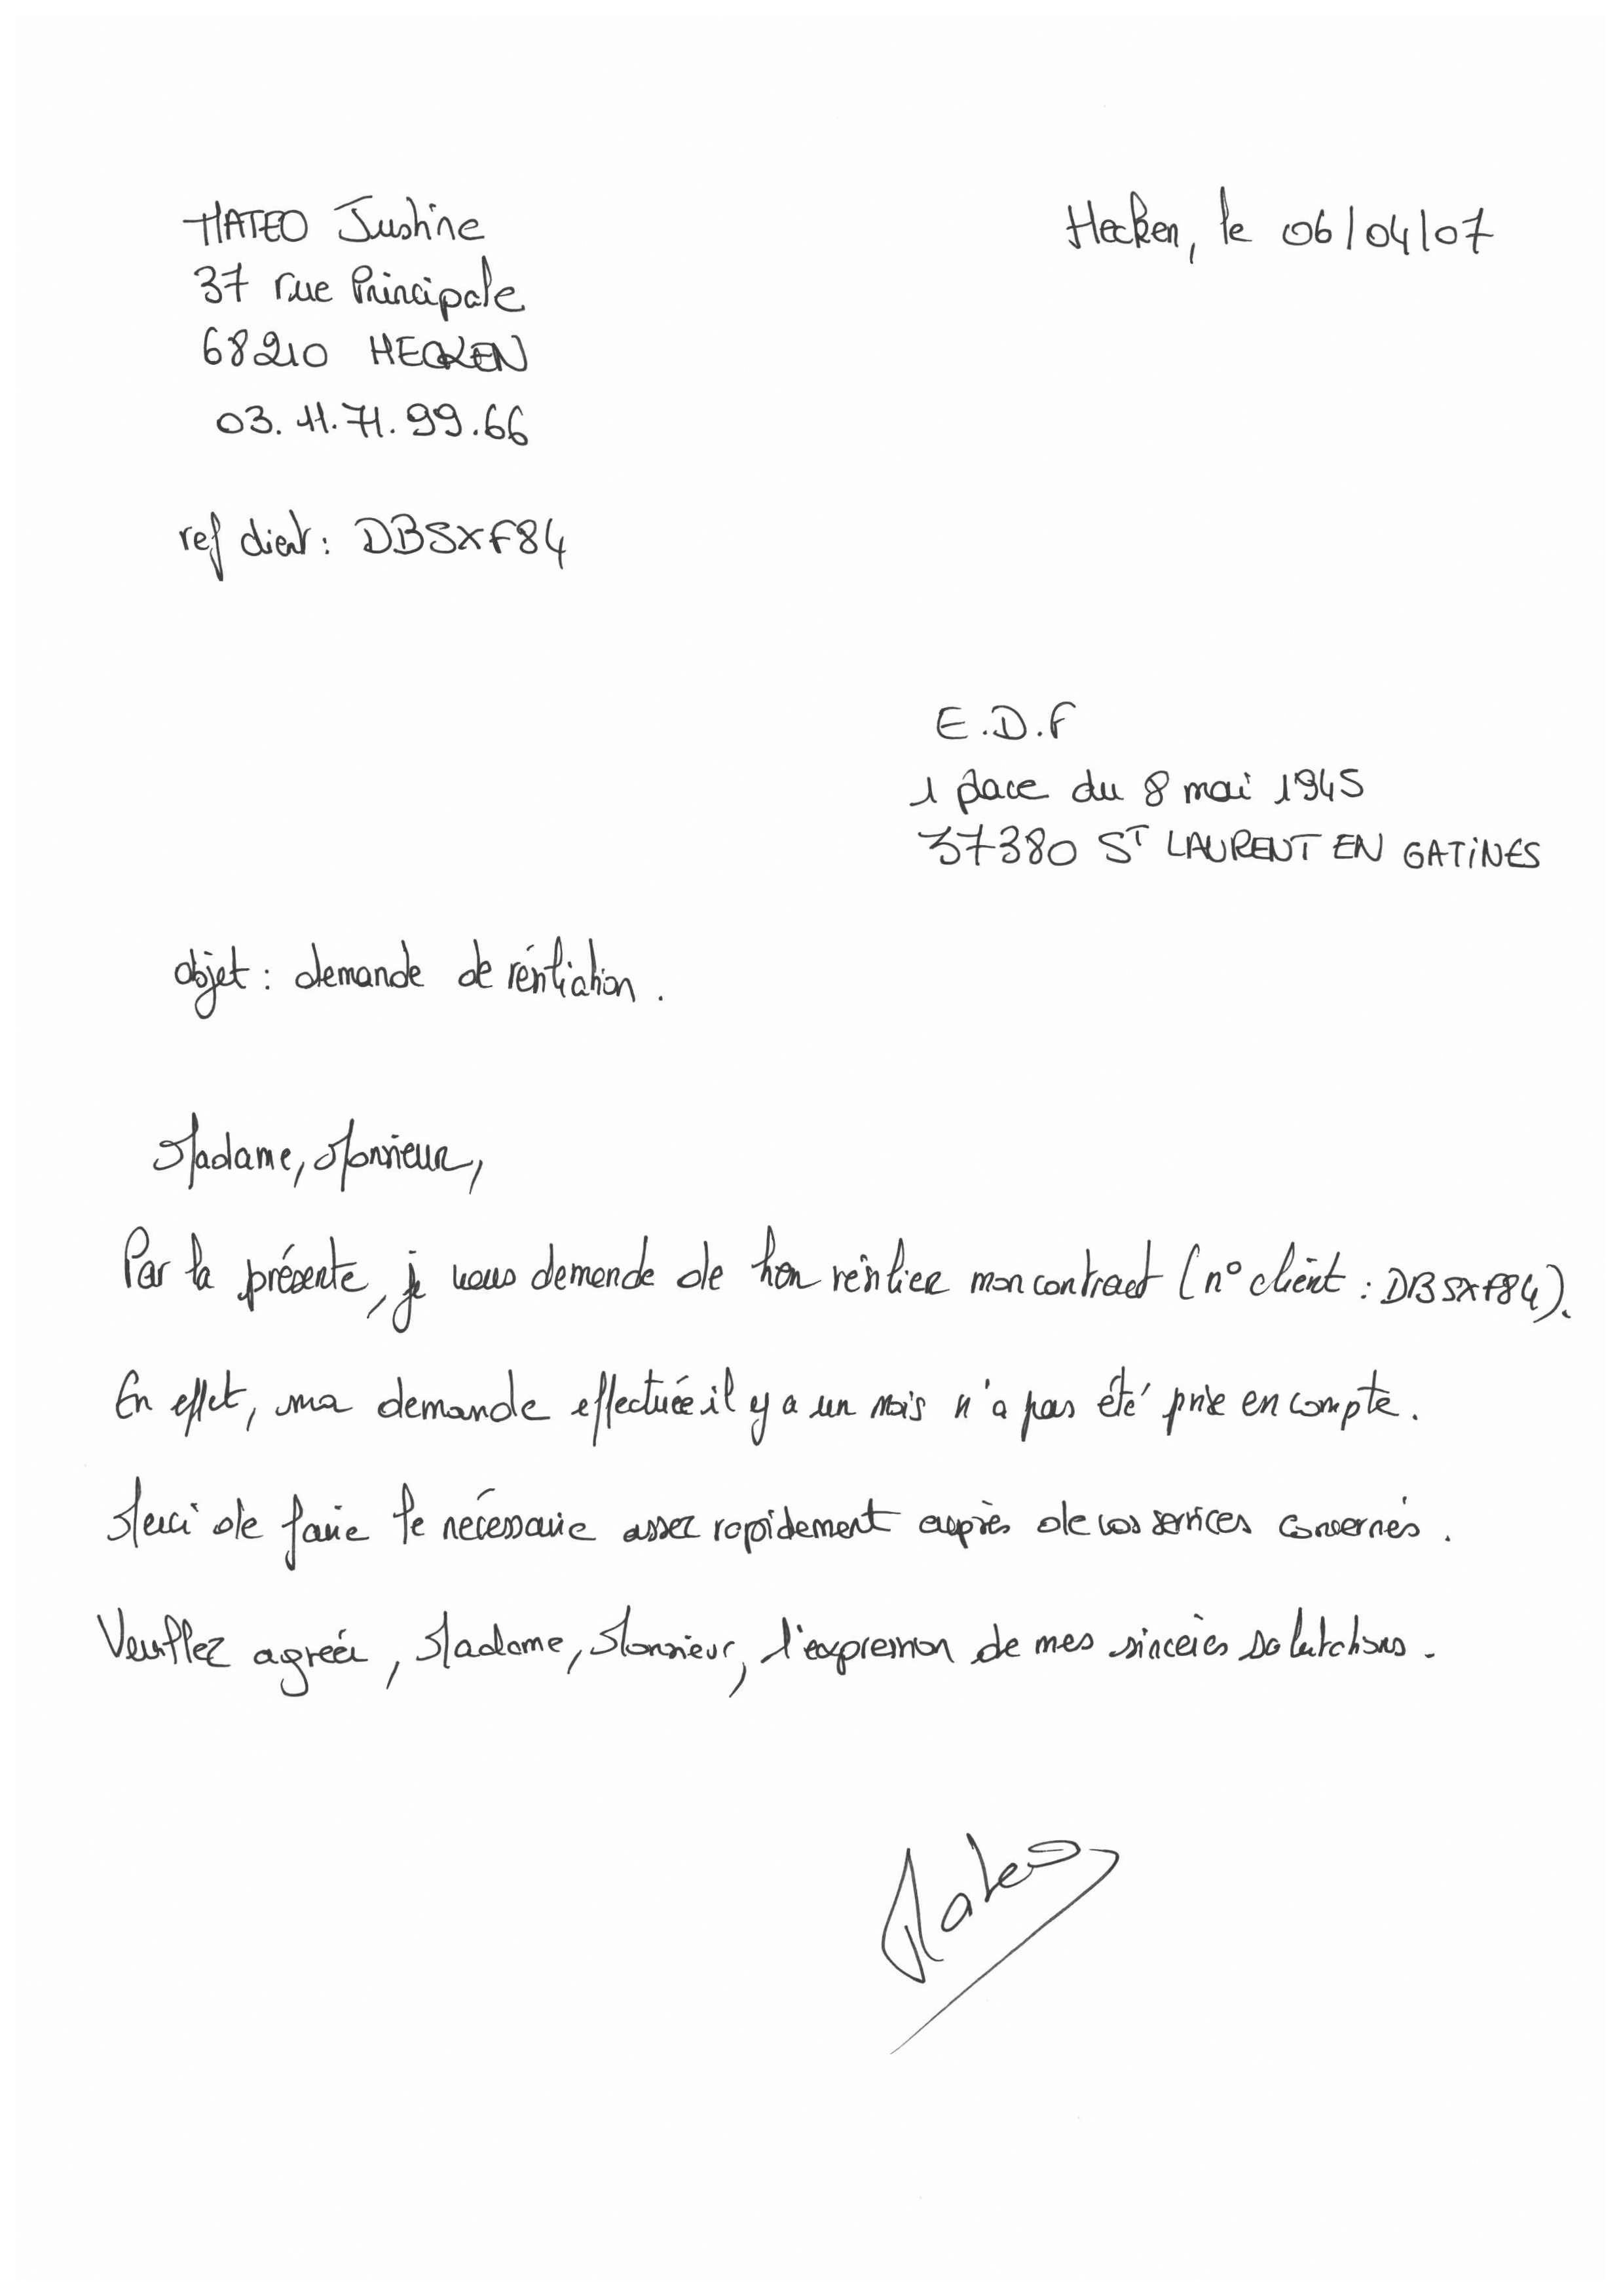 MATEO Justine
Hecken, le 06/04/07
37 rue Principale
68210 HECKEN
03.11.71.99.66
ref client : DBSXF84
E.D.F
1 place du 8 mai 1945
37380 ST LAURENT EN GATINES
objet : demande de résiliation.
Madame, Monsieur,
Par la présente, je vous demande de bien résilier mon contract (n° client : DBSXF84).
En effet, ma demande effectuée il y a un mois n'a pas été prise en compte.
Merci de faire le nécessaire assez rapidement auprès de vos services concernés.
Veuillez agréer, Madame, Monsieur, l'expression de mes sincères salutations.
Mateo